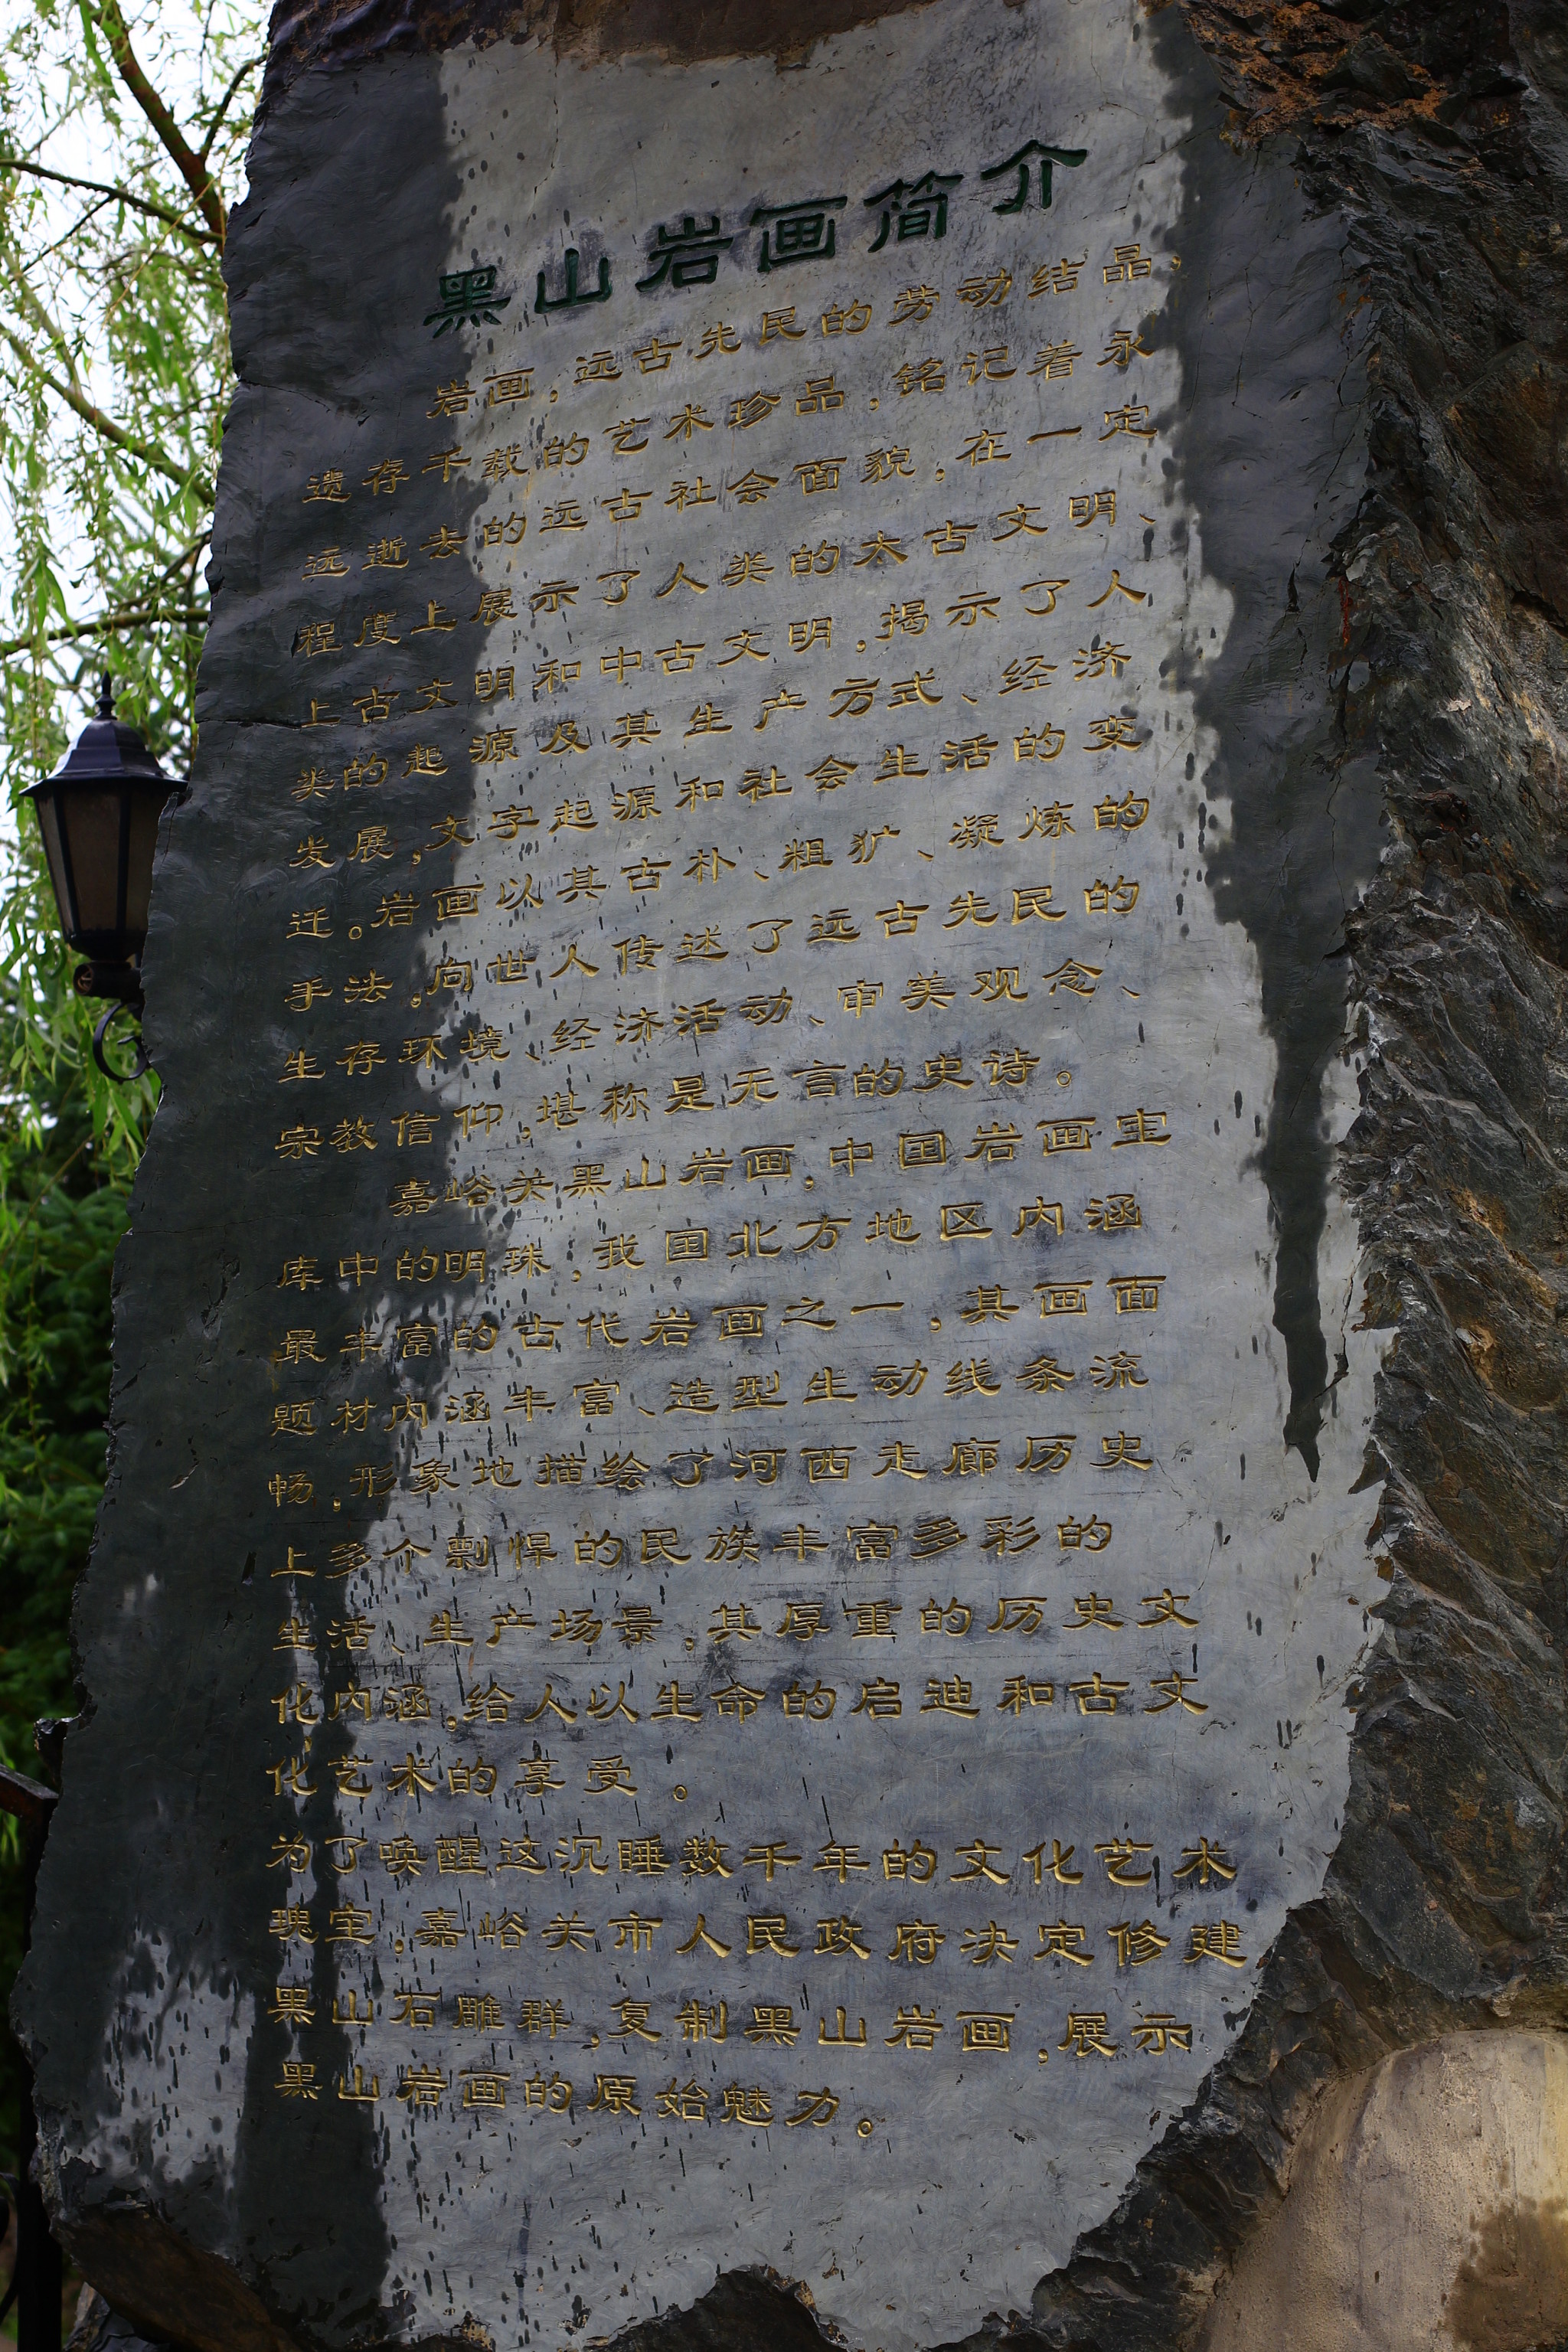 黑山岩画简介
岩画，远古先民的劳动结晶，
遗存千载的艺术珍品，铭记着永
远逝去的远古社会面貌，在一定
程度上展示了人类的太古文明、
上古文明和中古文明，揭示了人
类的起源及其生产方式、经济
发展，文字起源和社会生活的变
迁。岩画以其古朴、粗犷、凝炼的
手法，向世人传述了远古先民的
生存环境、经济活动、审美观念、
宗教信仰，堪称是无言的史诗。
嘉峪关黑山岩画，中国岩画宝
库中的明珠，我国北方地区内涵
最丰富的古代岩画之一，其画面
题材内涵丰富、造型生动线条流
畅，形象地描绘了河西走廊历史
上多个剽悍的民族丰富多彩的
生活、生产场景，其厚重的历史文
化内涵，给人以生命的启迪和古文
化艺术的享受。
为了唤醒这沉睡数千年的文化艺术
瑰宝，嘉峪关市人民政府决定修建
黑山石雕群，复制黑山岩画，展示
黑山岩画的原始魅力。